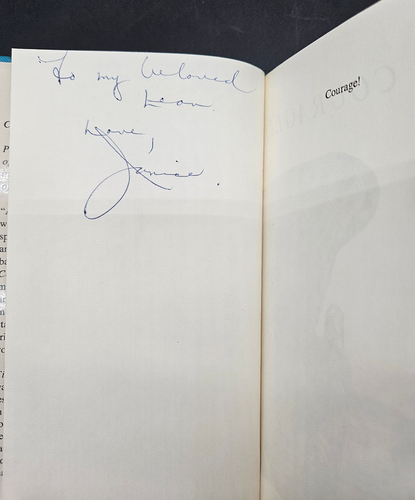 To my beloved
Leon
Love,
Janice.
Courage!